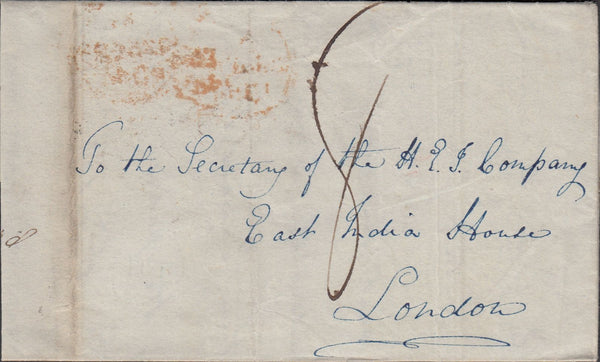 To the Secretary of the H. E. I. Company
East India House
London
8